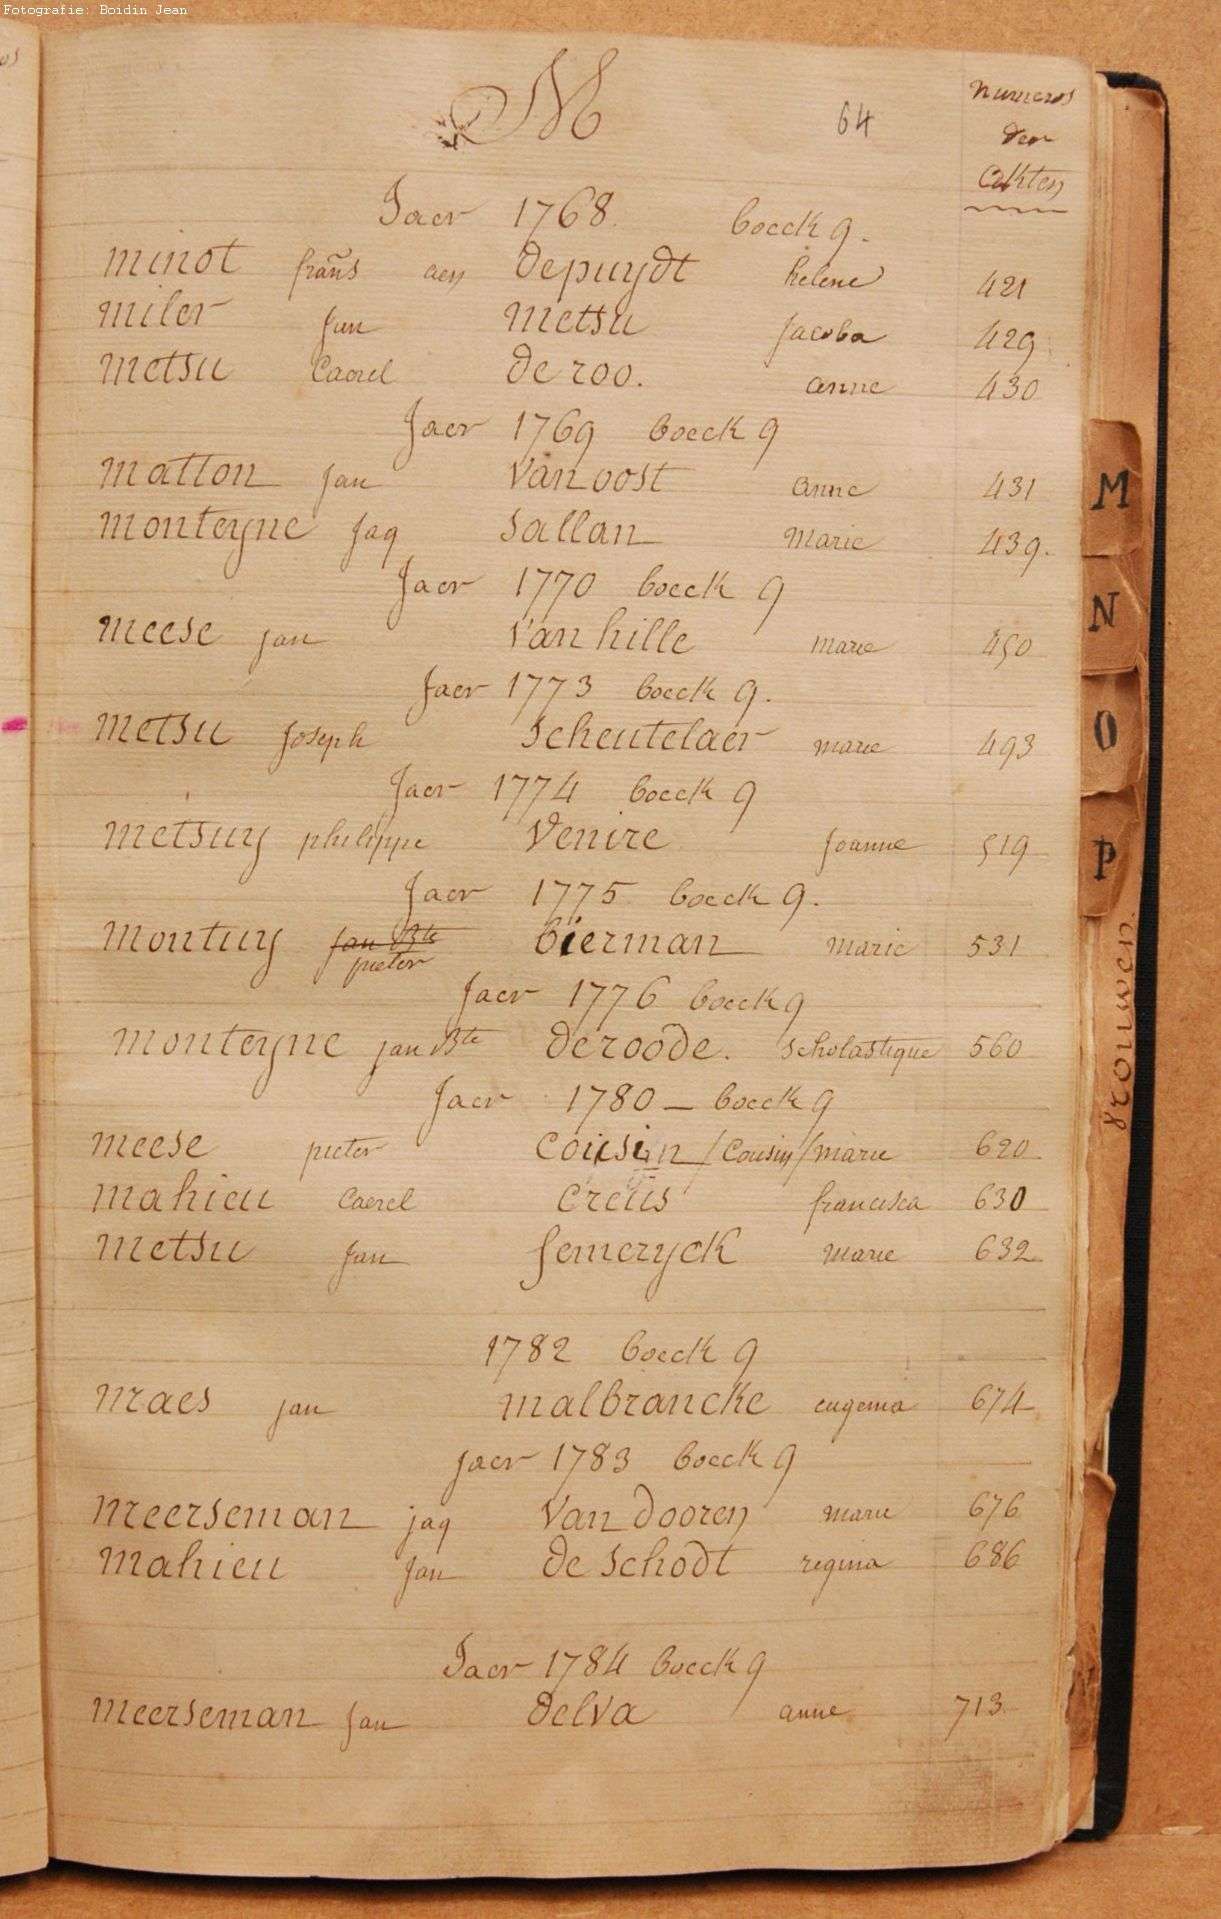 Fotografie: Boidin Jean
M 64 numeros
der
akten
Jaer 1768 boeck 9.
minot frans aen depuydt helene 421
miler Jan metsu Jacoba 429
metsu Caerel de roo. anne 430
Jaer 1769 boeck 9
matton Jan Van oost anne 431
monteyne Jaq Sallan Marie 439.
Jaer 1770 boeck 9
meese jan Van hille marie 450
Jaer 1773 boeck 9.
metsu Joseph Scheutelaer marie 493
Jaer 1774 boeck 9
metsuy philippe Venire Joanne 519
Jaer 1775 boeck 9.
montuy jan Bte bierman marie 531
pieter
Jaer 1776 boeck 9
monteyne jan Bte deroode. Scholastique 560
Jaer 1780 – boeck 9
meese pieter Cousin /Cousin/ marie 620
mahieu Caerel Creus francisca 630
metsu Jan femeryck marie 632
1782 boeck 9
maes jan malbrancke eugenia 674
jaer 1783 boeck 9
meerseman jaq Van dooren marie 676
mahieu Jan de Schodt regina 686
Jaer 1784 boeck 9
meerseman Jan delva anne 713
M
N
O
P
vrouwen